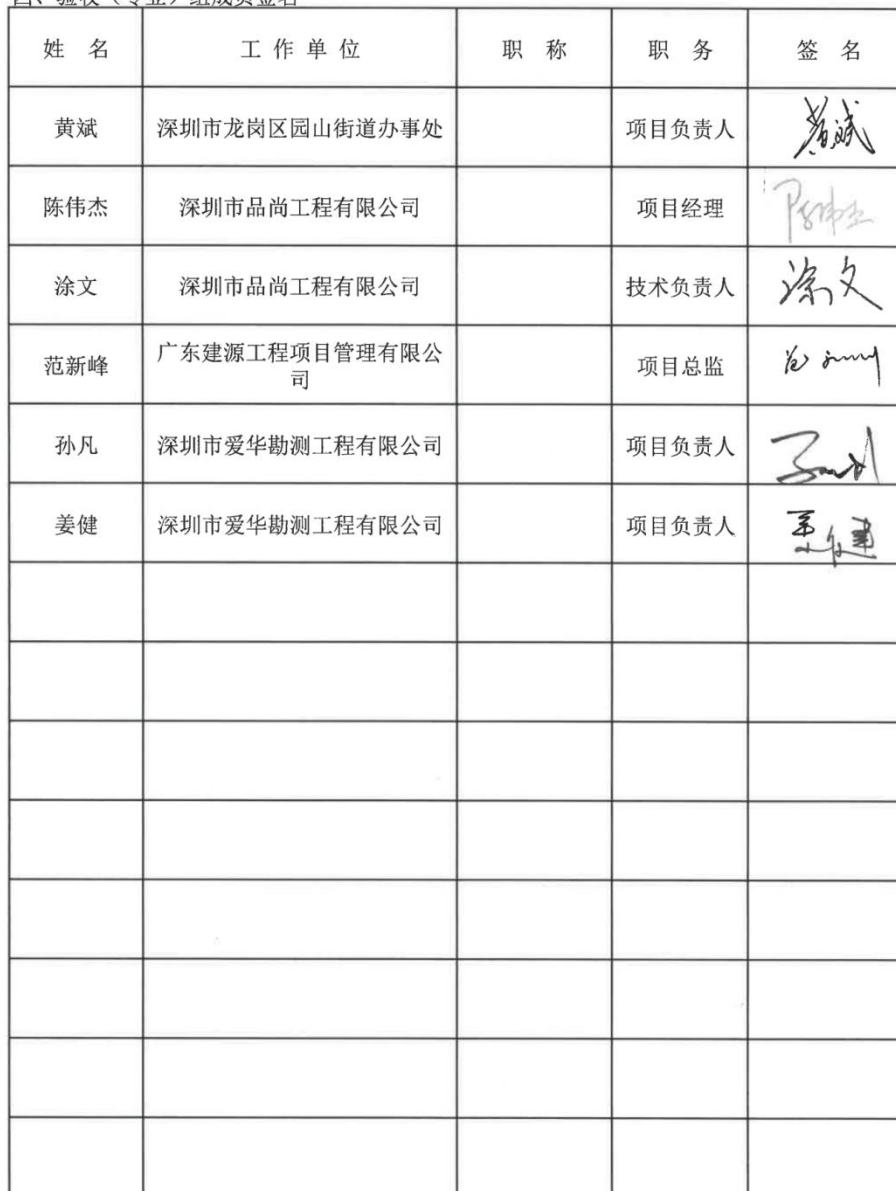 四、验收（专业）组成员签名
姓 名 工 作 单 位 职 称 职 务 签 名
黄斌 深圳市龙岗区园山街道办事处 项目负责人 黄斌
陈伟杰 深圳市品尚工程有限公司 项目经理 陈伟杰
涂文 深圳市品尚工程有限公司 技术负责人 涂文
范新峰 广东建源工程项目管理有限公
司 项目总监
孙凡 深圳市爱华勘测工程有限公司 项目负责人
姜健 深圳市爱华勘测工程有限公司 项目负责人 姜健